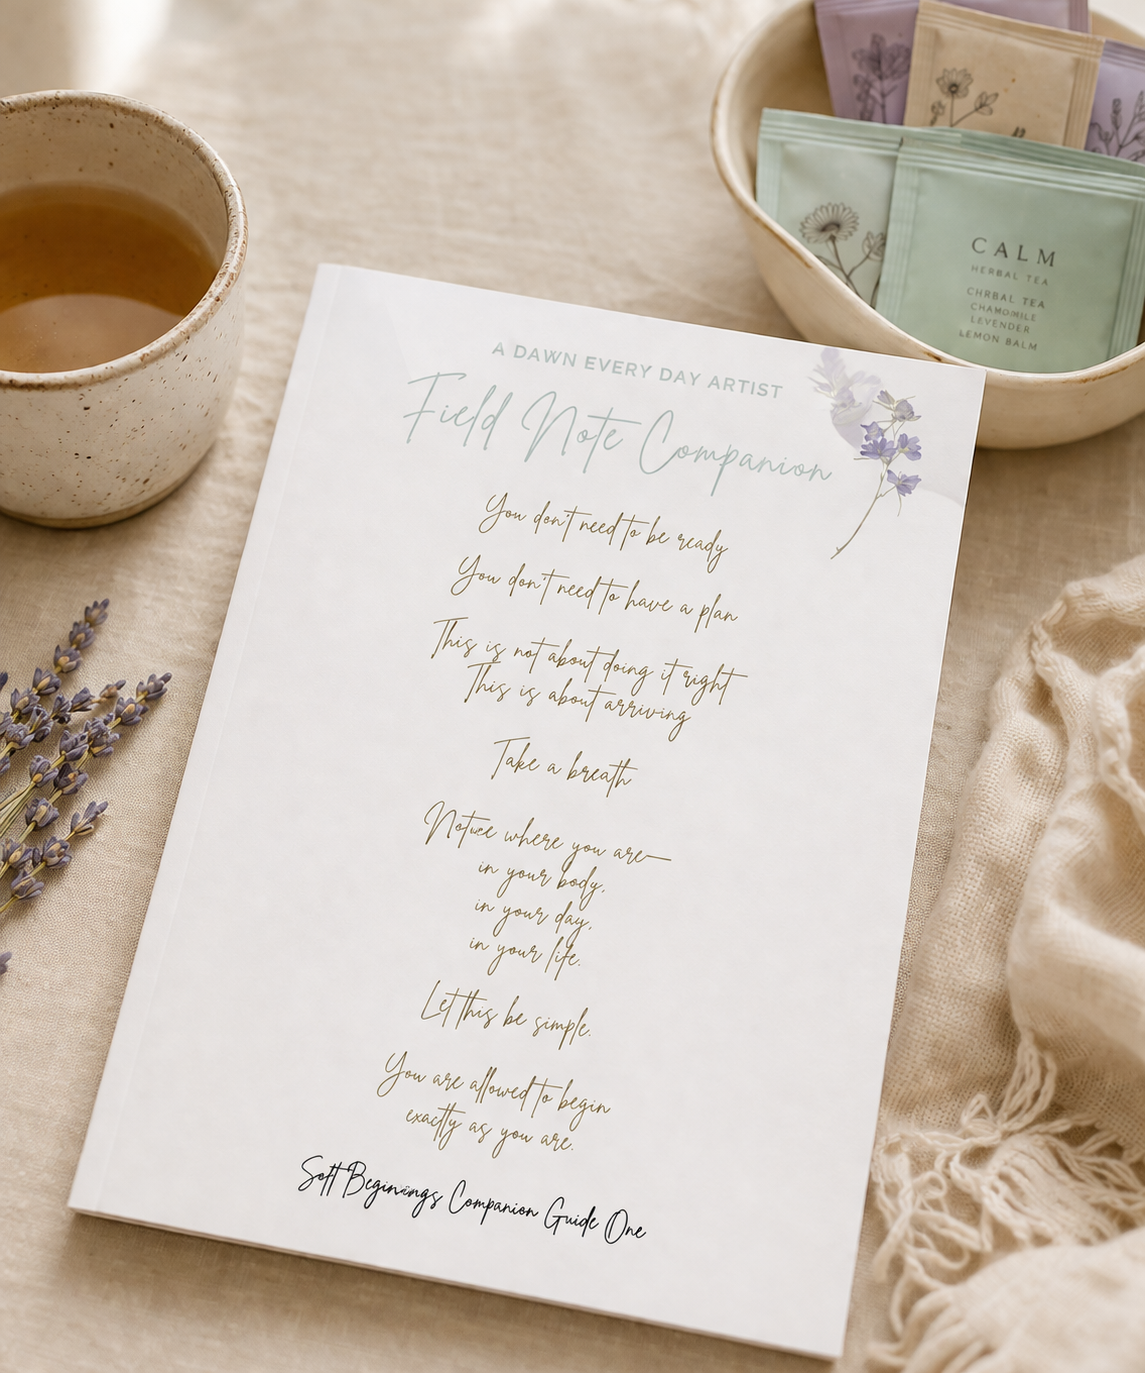 CALM
HERBAL TEA
CHRBAL TEA
CHAMOMILE
LEVENDER
LEMON BALM
A DAWN EVERY DAY ARTIST
Field Note Companion
You don't need to be ready
You don't need to have a plan
This is not about doing it right
This is about arriving
Take a breath
Notice where you are—
in your body,
in your day,
in your life.
Let this be simple.
You are allowed to begin
exactly as you are.
Soft Beginnings Companion Guide One